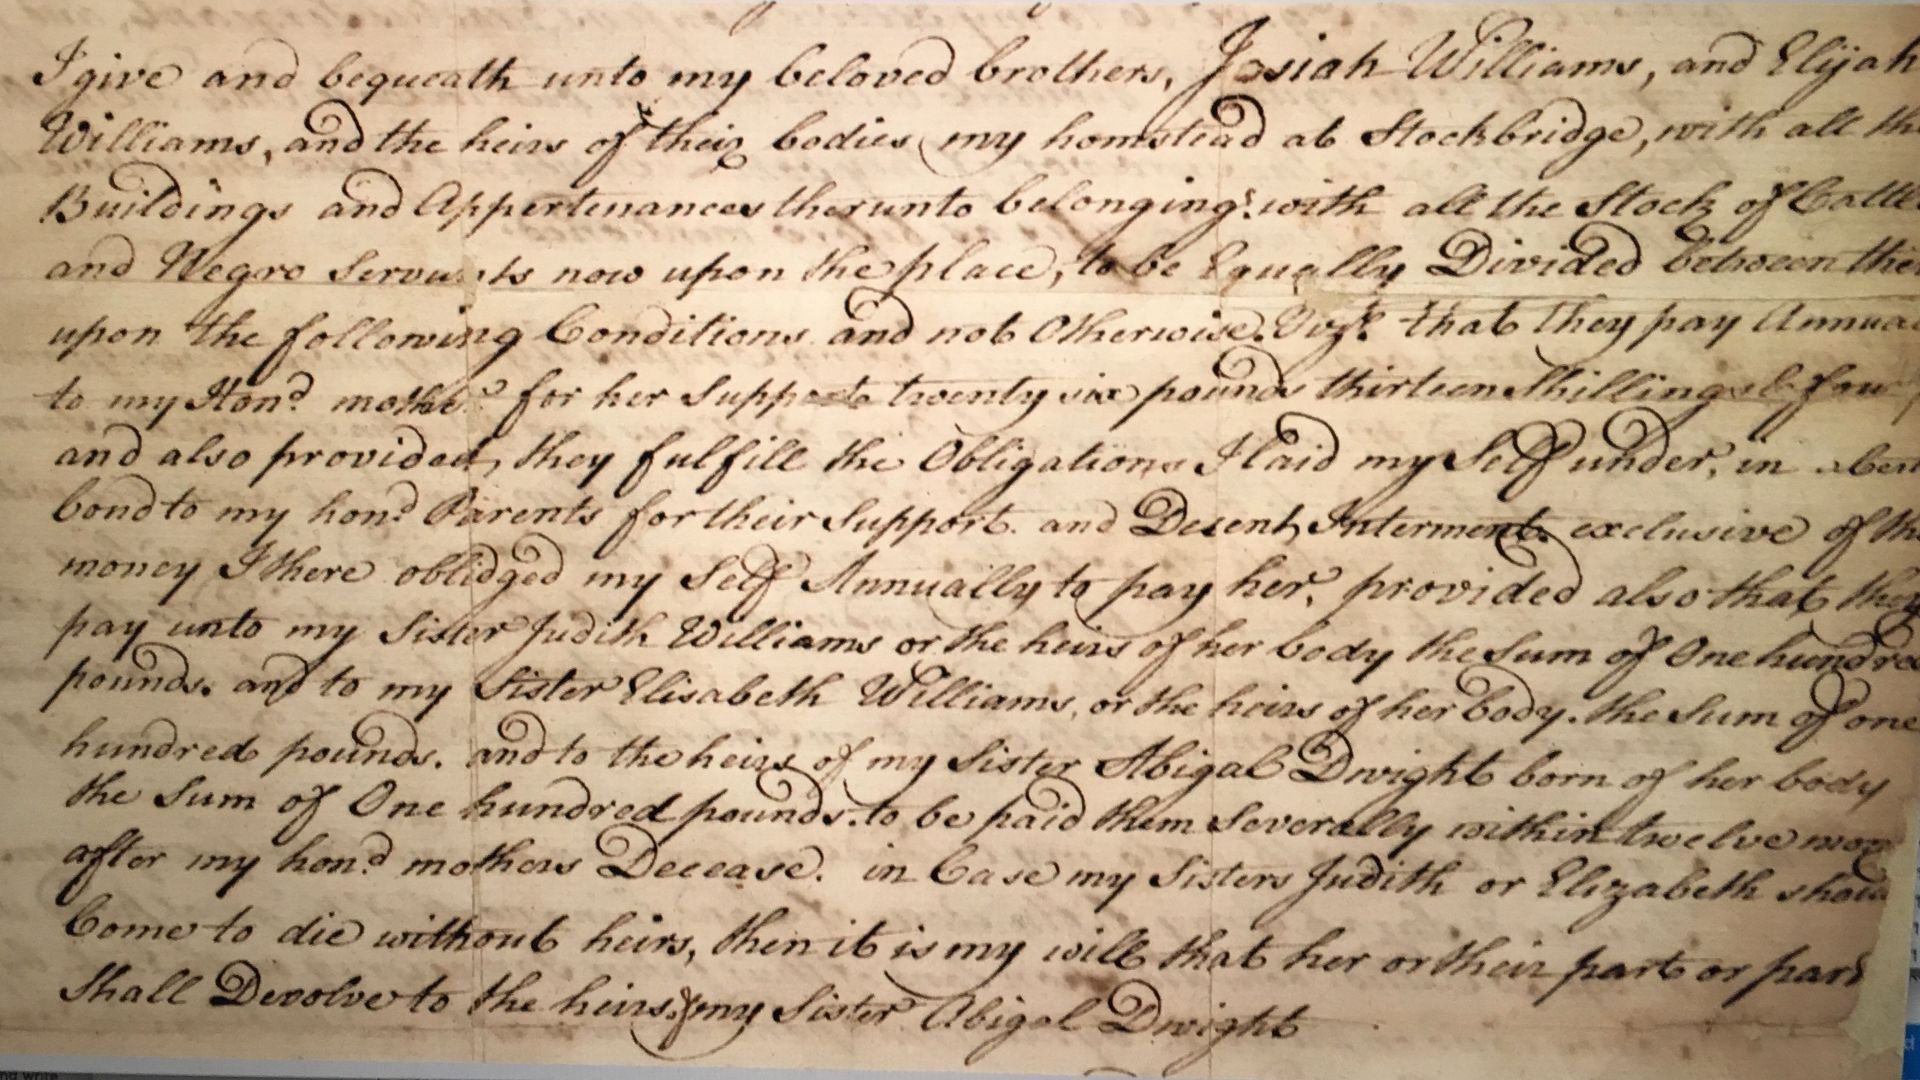 I give and bequeath unto my beloved brothers, Josiah Williams, and Elijah
Williams, and the heirs of their bodies my homstead at Stockbridge, with all the
Buildings and Appertenances therunto belonging: with all the Stock of Cattle
and Negro Servants now upon the place, to be Equally Divided between them
upon the following Conditions and not Otherwise. Vizt. that they pay Annual
to my Hond. mother for her Support twenty six pounds thirteen Shillings & four
and also provided, they fulfill the Obligations I laid my Self under, in a
bond to my hond. Parents for their Support. and Decent Interment. exclusive of the
money I there oblidged my Self Annually to pay her, provided also that they
pay unto my Sister Judith Williams or the heirs of her body the Sum of One hundred
pounds. and to my Sister Elisabeth Williams, or the heirs of her body. the Sum of one
hundred pounds. and to the heirs of my Sister Abigal Dwight born of her body
the Sum of One hundred pounds. to be paid them Severally within twelve mon
after my hond. mothers Decease. in Case my Sisters Judith or Elizabeth should
Come to die without heirs, then it is my will that her or their part or parts
Shall Devolve to the heirs of my Sister Abigal Dwight